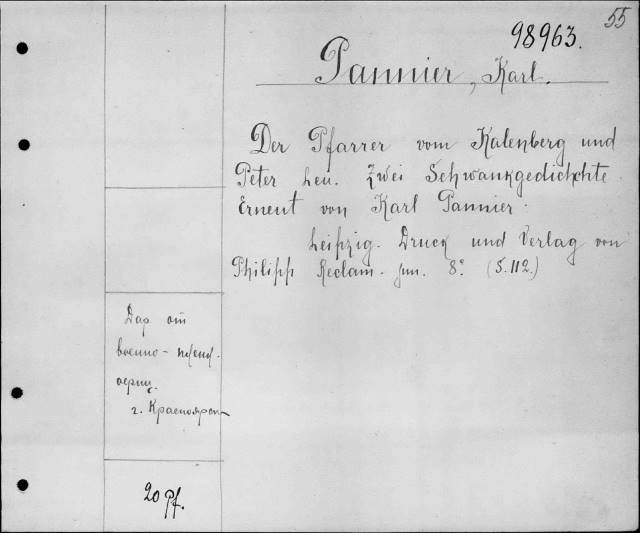 55
98963.
Pannier, Karl.
Der Pfarrer vom Kalenberg und
Peter Leu. Zwei Schwankgedichchte
Erneut von Karl Pannier.
Leipzig. Druck und Verlag von
Philipp Reclam. jun. 8º. (S. 112.)
Дар от
военно-
г. Красноярск
20 Pf.